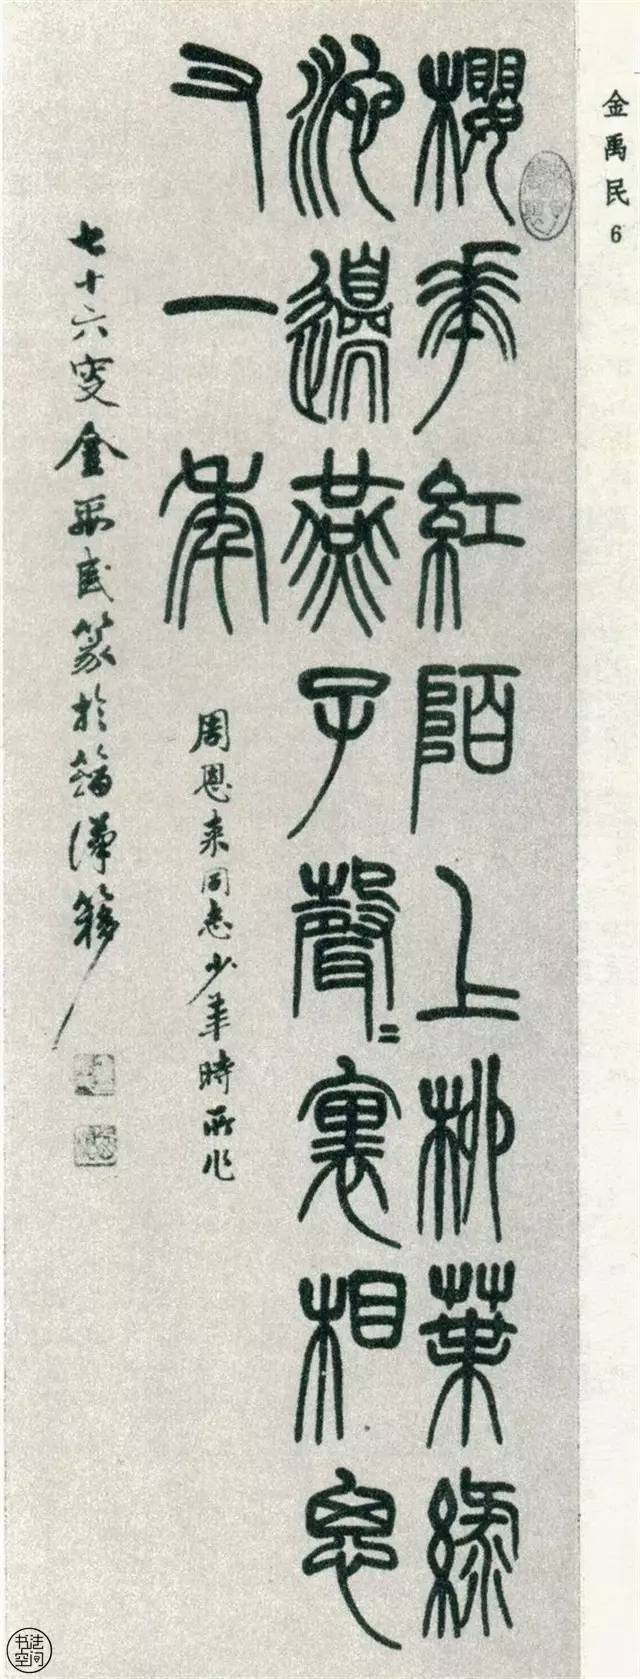 櫻花紅陌上柳葉綠
池邊燕子聲〻裏相思
又一年
周恩來同志少年時所作
七十六叟金禹民篆於
金禹民 6
书法空间